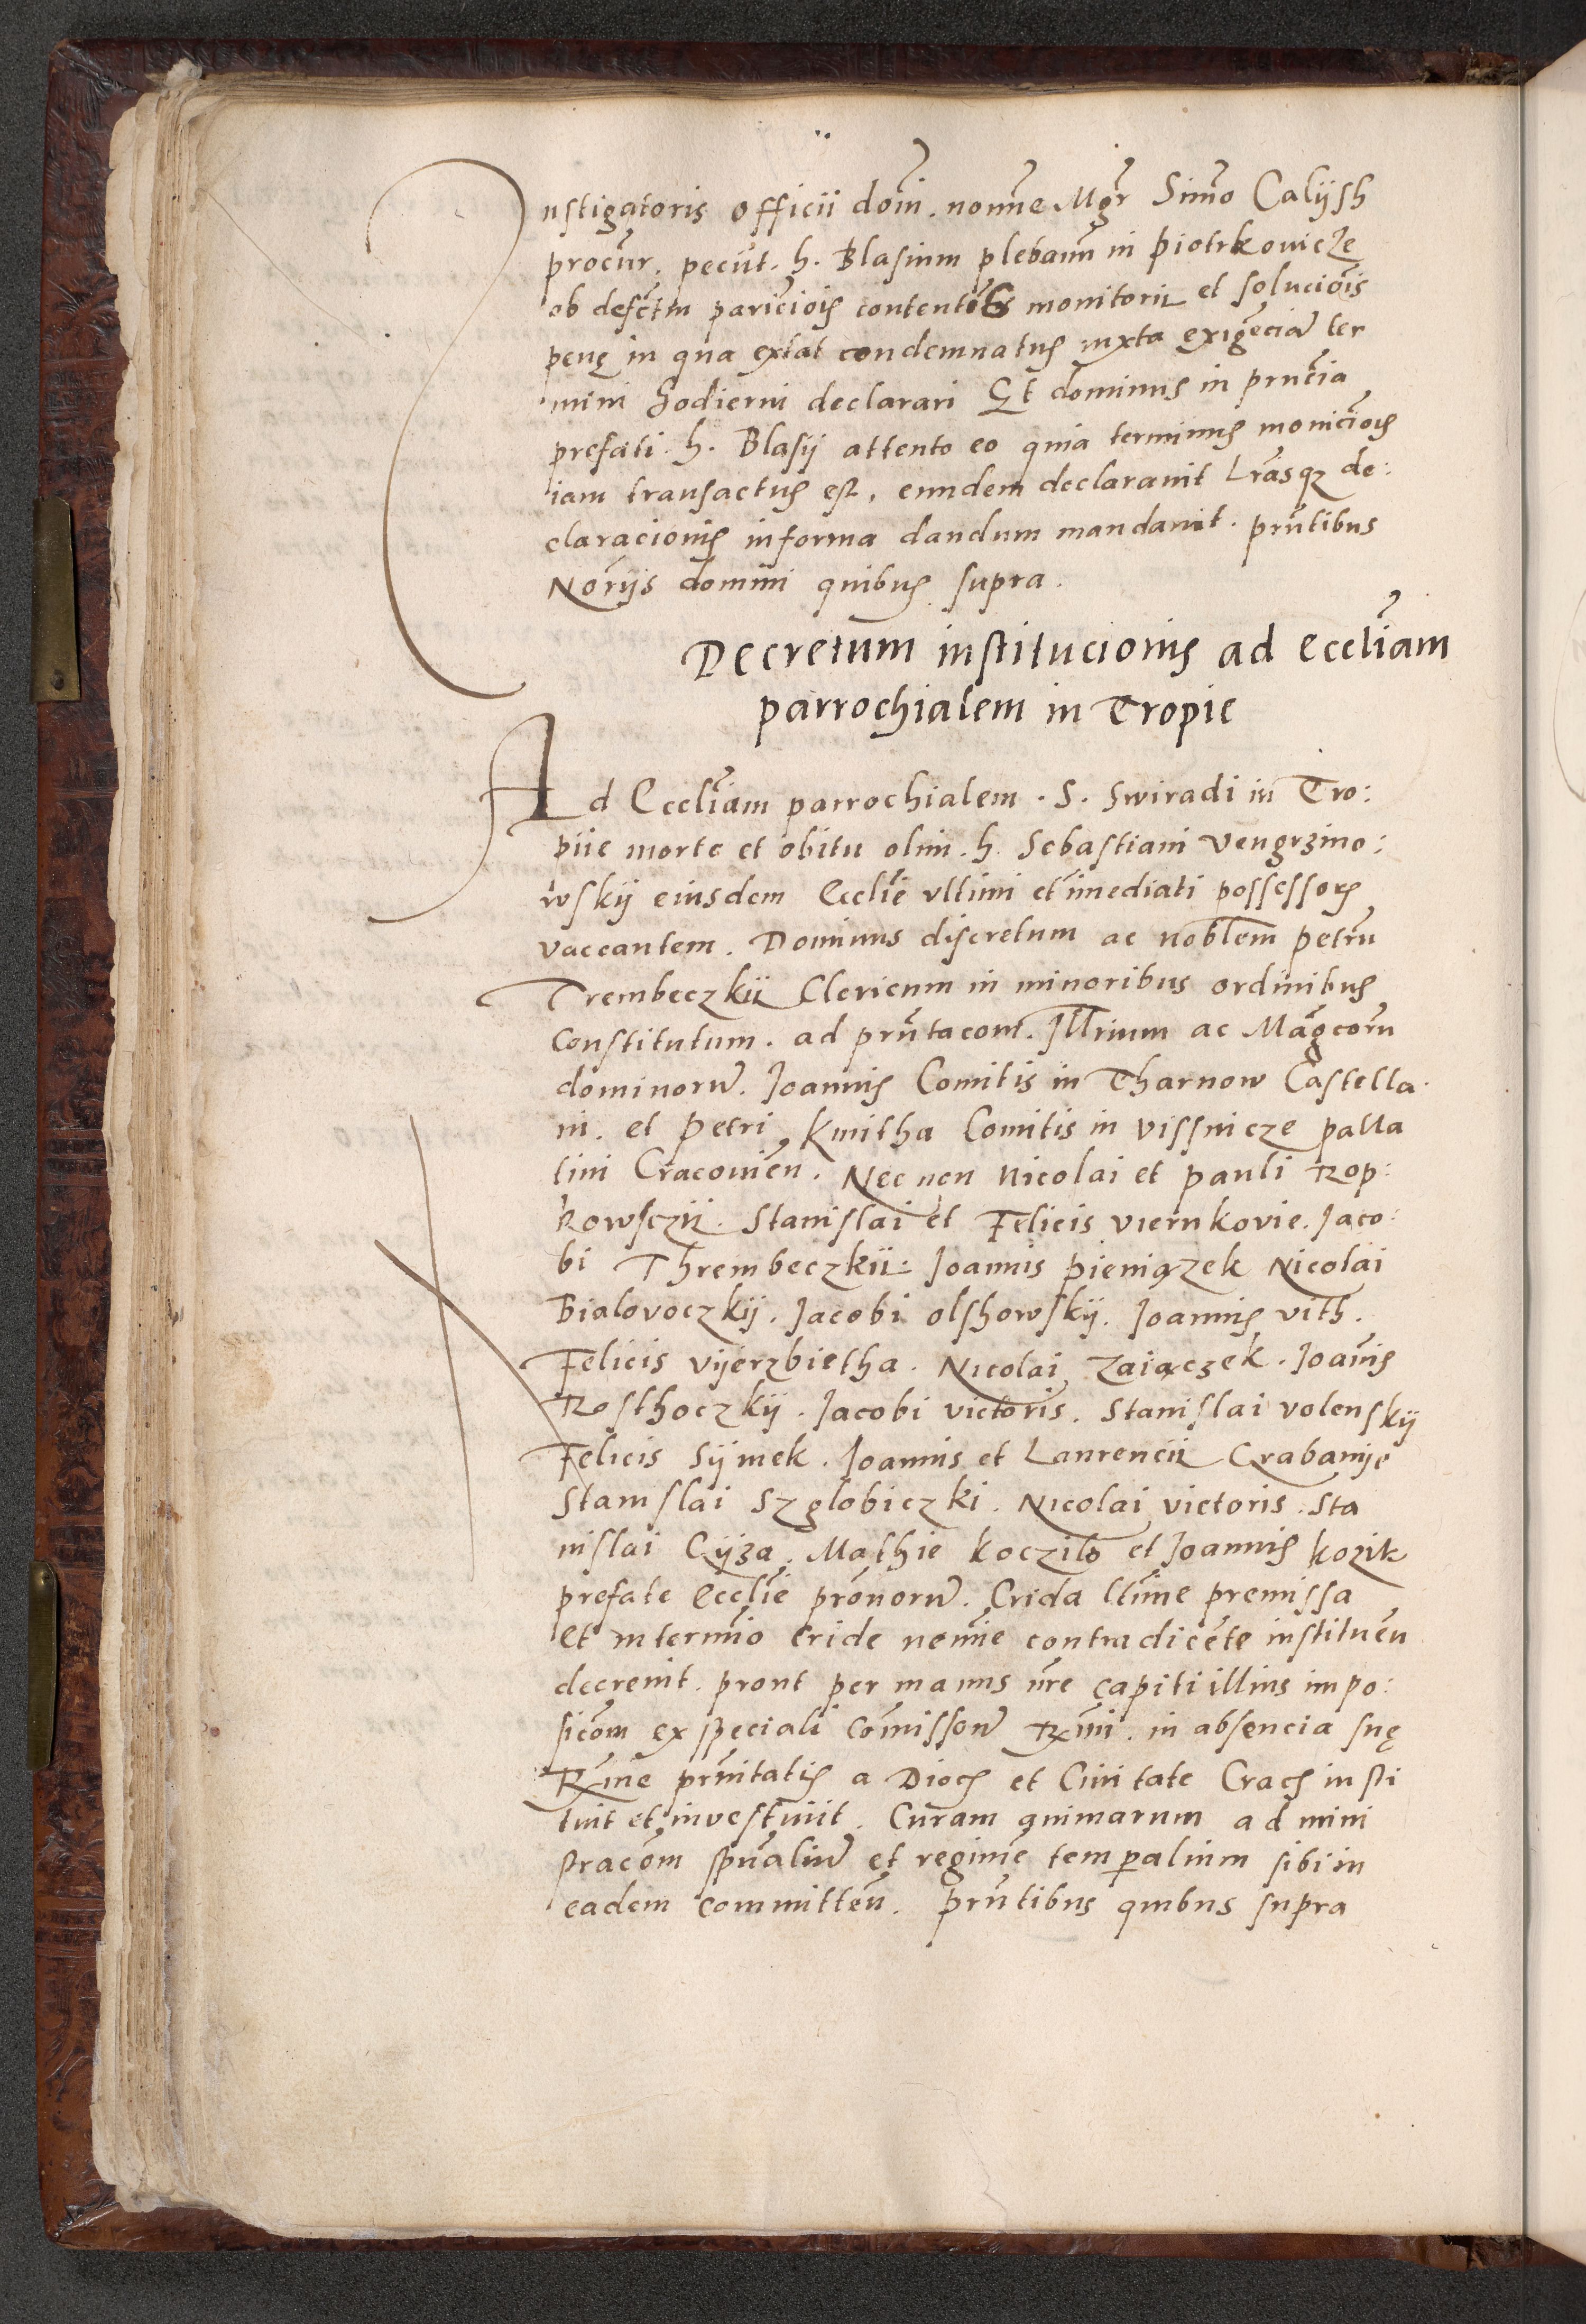 Instigatoris officii domi. nomine Mgr Simo Calijsh
procur. peciit. h. Blasium plebanum in Piotrkouicze
ob defectum paricionis contentorum monitorii et solucionis
penę in qua extat condemnatus iuxta exigēciam ter
mini hodierni declarari Et dominus in pruncia
prefati h. Blasij attento eo quia terminus monicionis
iam transactus est, eundem declarauit Lrasq; de:
claracionis in forma dandum mandauit. prntibus
Norijs domini quibus supra.
Decretum institucionis ad eccliam
parrochialem in Tropie
Ad Eccliam parrochialem . S. Swiradi in Tro:
piie morte et obitu olim . h. Sebastiani Vengrzino:
wskij eiusdem Ecclie vltimi et imediati possessoris
vaccantem. Dominus discretum ac noblem petrum
Trembeczkii Clericum in minoribus ordinibus
constitutum. ad prntacom. Illrium ac Magcorum
dominorum. Joannis Comitis in Tharnow Castella
ni. et Petri Kmitha Comitis in vissnicze palla
tini Cracouien. Nec non Nicolai et pauli Rop:
kowsczii. Stanislai et Felicis viernkovie. Jaco:
bi Thrembeczkii: Joannis pieniązek Nicolai
Bialovoczkij. Jacobi olshowskij. Joannis vith.
Felicis vijerzbietha. Nicolai Zaiączek. Joanis
Rosthoczkij. Jacobi victoris. Stanislai volenskij
Felicis Sijmek. Joannis et Laurencii Grabanije
Stanislai Szglobiczki. Nicolai victoris. Sta
nislai Cijza. Mathie koczilo et Joannis kozik
prefate Ecclie pronorum. Crida ltime premissa
et in termino cride nemine contradicēte instituen
decreuit. prout per manus nre capiti illius impo:
sicom ex speciali Comissione Rmi. in absencia suę
Rme prnitatis a Dioc et Ciuitate Crac insti
tuit et investiuit. Curam animarum admini
stracom spualium et regimē temperalium sibi in
eadem committen. prntibus quibus supra